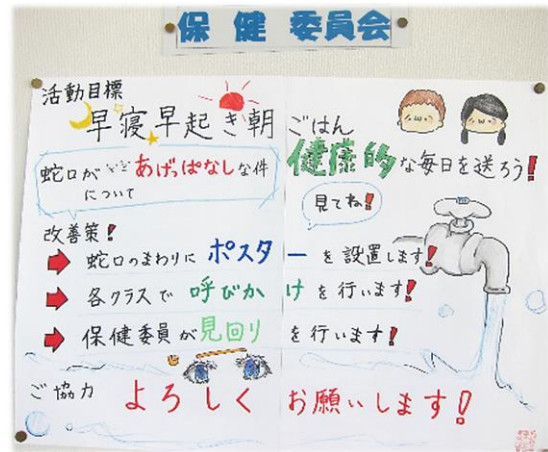 保健委員会
活動目標
早寝早起き朝ごはん
健康的な毎日を送ろう!
蛇口が あげっぱなしな件
について
見てね!
改善策!
蛇口のまわりにポスターを設置します!
各クラスで呼びかけを行います!
保健委員が見回りを行います!
ご協力よろしくお願いします!